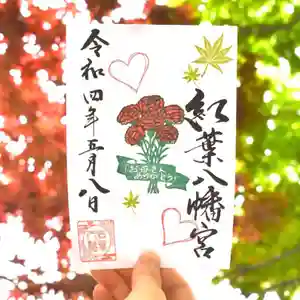 紅葉八幡宮
お母さん
ありがとう
令和四年五月八日